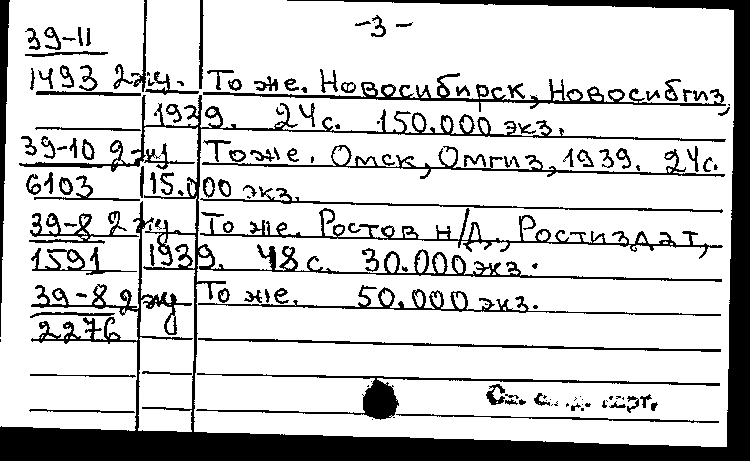 -3-
39-11
1493 2 эк. То же. Новосибирск, Новосибгиз,
1939. 24 с. 150.000 экз.
39-10 2 эк То же. Омск, Омгиз, 1939. 24 с.
6103 15.000 экз.
39-8 2 эк. То же. Ростов н/Д., Ростиздат,
1591 1939. 48 с. 30.000 экз.
39-8 2 эк То же. 50.000 экз.
2276
См. карт.